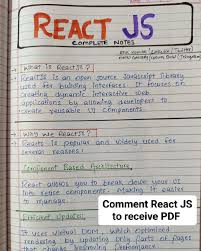 REACT JS
COMPLETE NOTES
What is ReactJS?
ReactJS is an open source Javascript library
used for building interfaces. It focuses on
creating dynamic interactive web
applications by allowing developers to
create reusable UI components.
Why use ReactJS?
ReactJS is popular and widely used for
several reasons!
Component Based
React allows you to break down your UI
into reuse components. Making it easier
to manage.
Efficient Updates
It uses virtual DOM, which optimized
rendering by updating only parts of Page
Comment React JS
to receive PDF